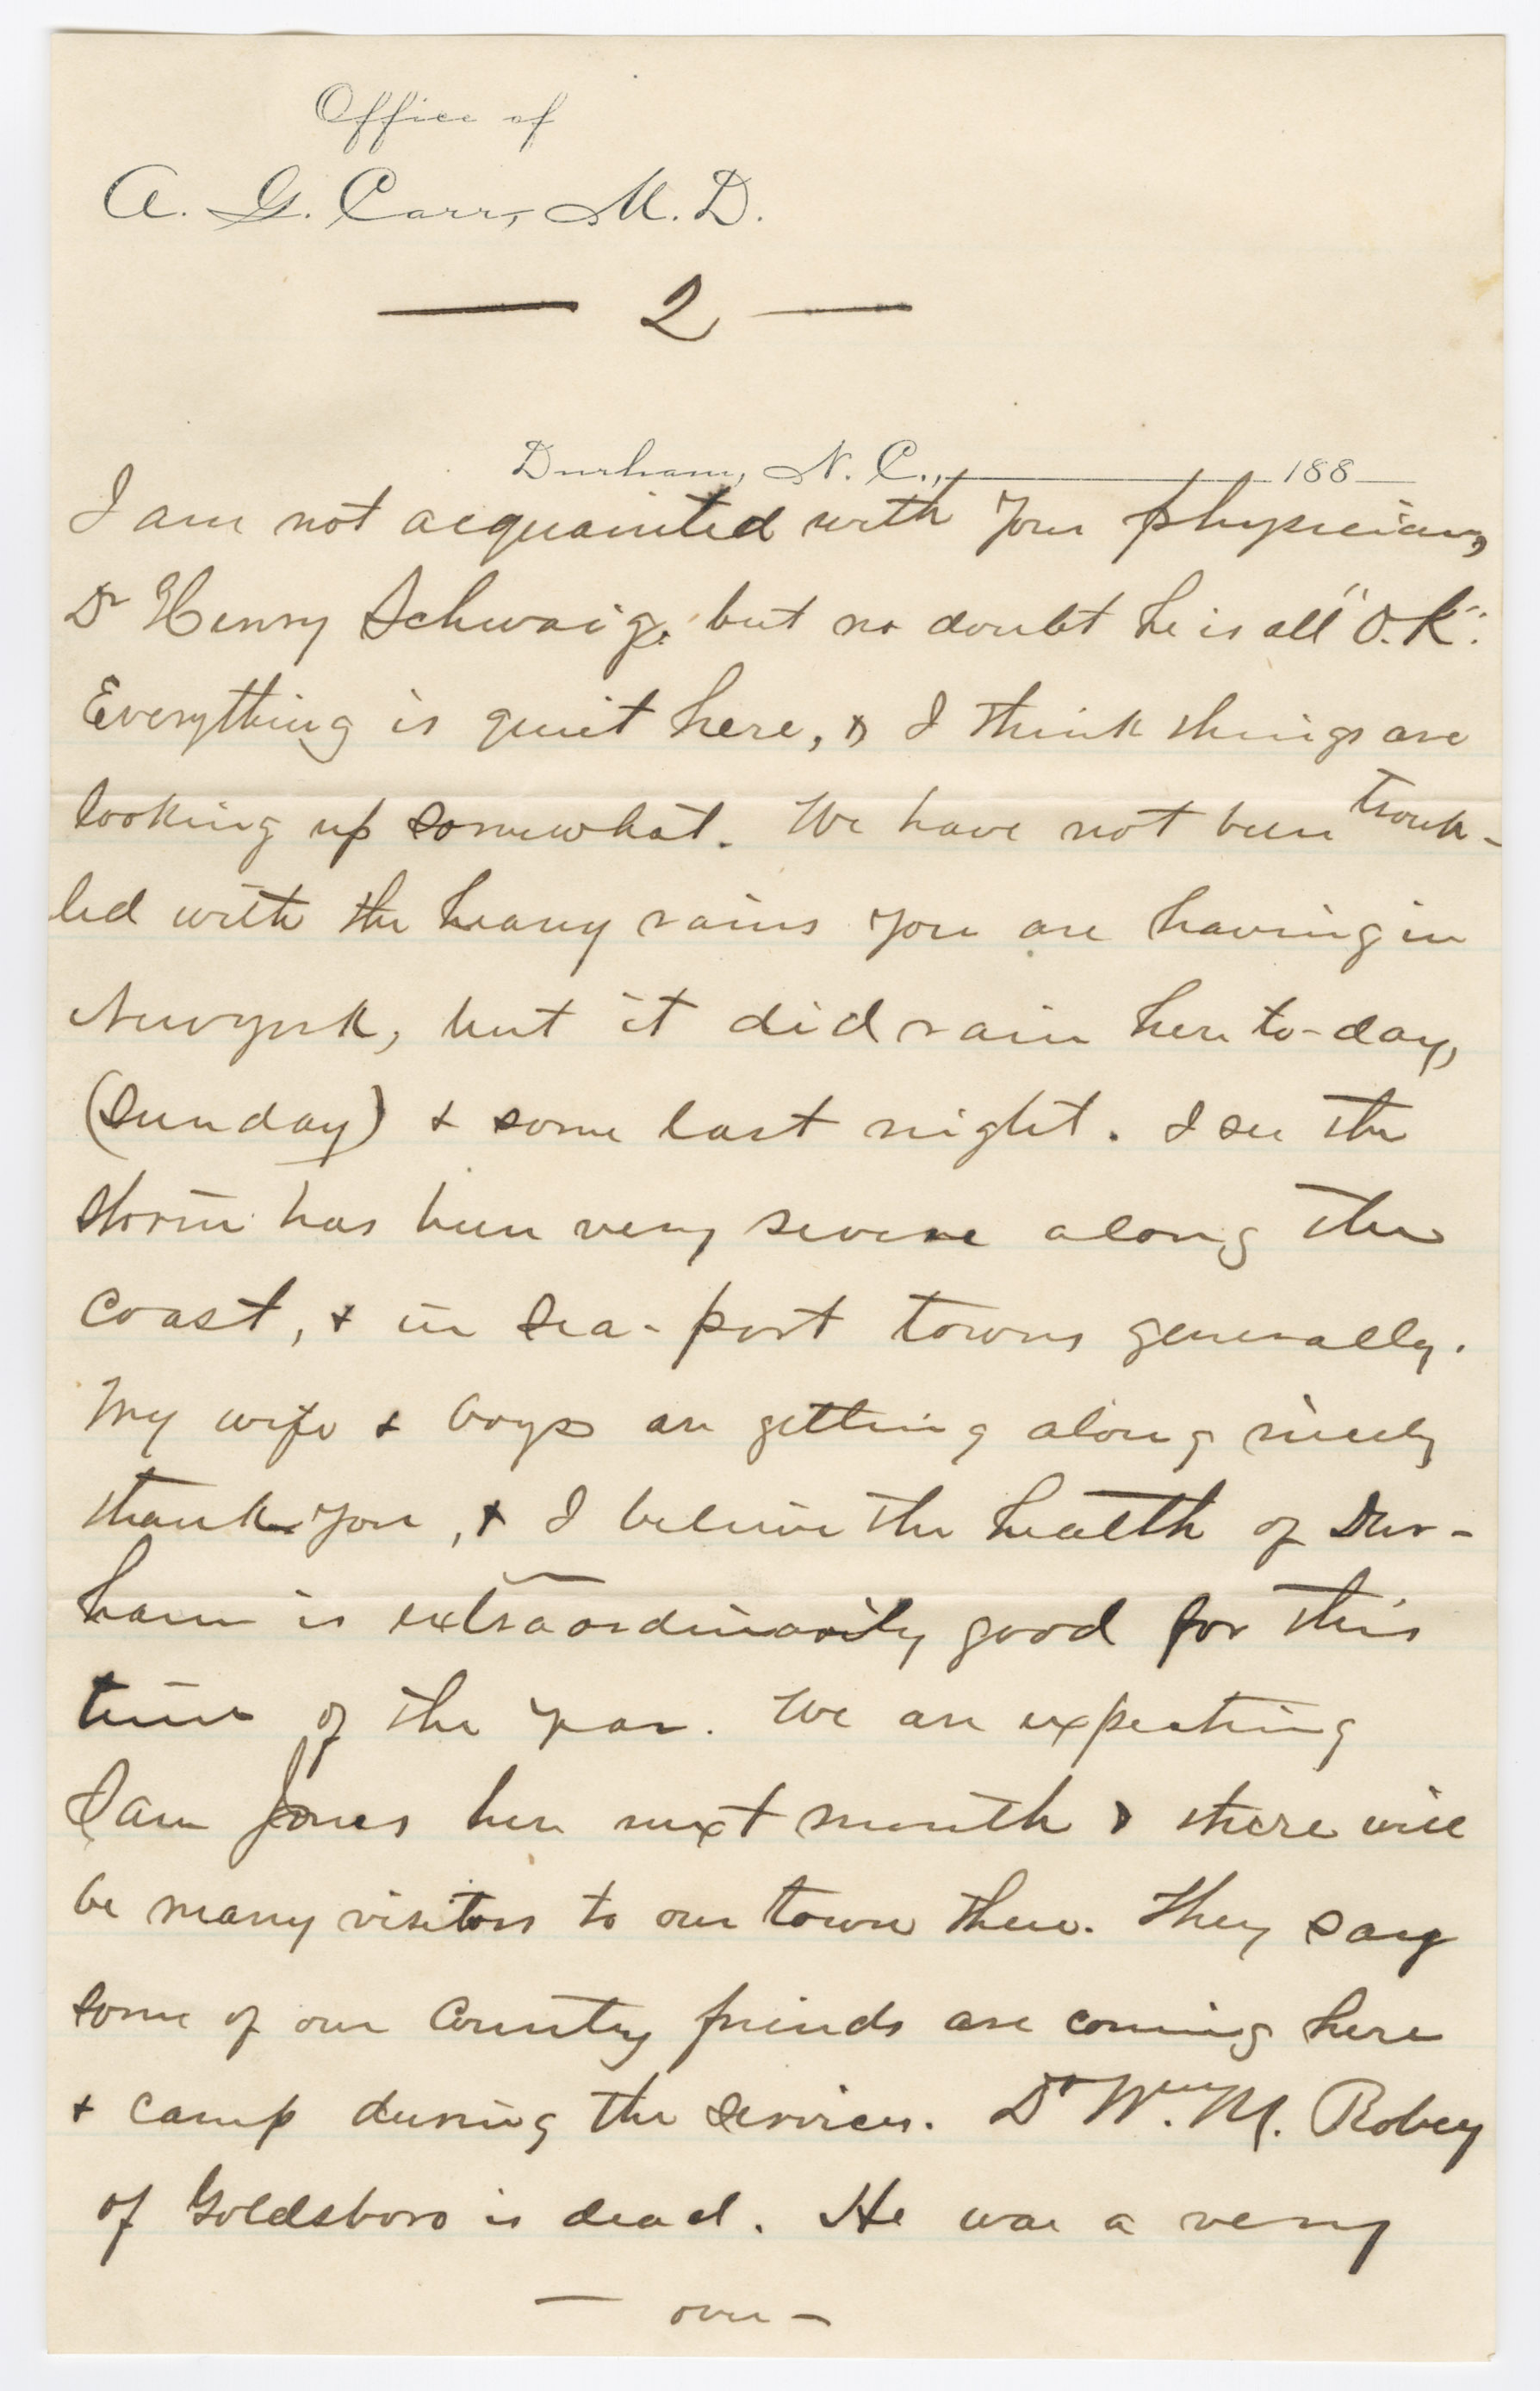 Office of
A. G. Carr, M. D.
— 2 —
Durham, N. C., 188
I am not acquainted with your physician,
Dr Henry Schwaig, but no doubt he is all "O.K".
Everything is quiet here, & I think things are
looking up somewhat. We have not been troub-
led with the heavy rains you are having in
Newyork, but it did rain here to-day,
(Sunday) & some last night. I see the
storm has been very severe along the
coast, & in sea-port towns generally.
My wife & boys are getting along nicely
thank you, & I believe the health of Dur-
ham is extraordinarily good for this
time of the year. We are expecting
Sam Jones here next month & there will
be many visitors to our town then. They say
some of our Country friends are coming here
& camp during the services. Dr Wm. M. Robey
of Goldsboro is dead. He was a very
— over —